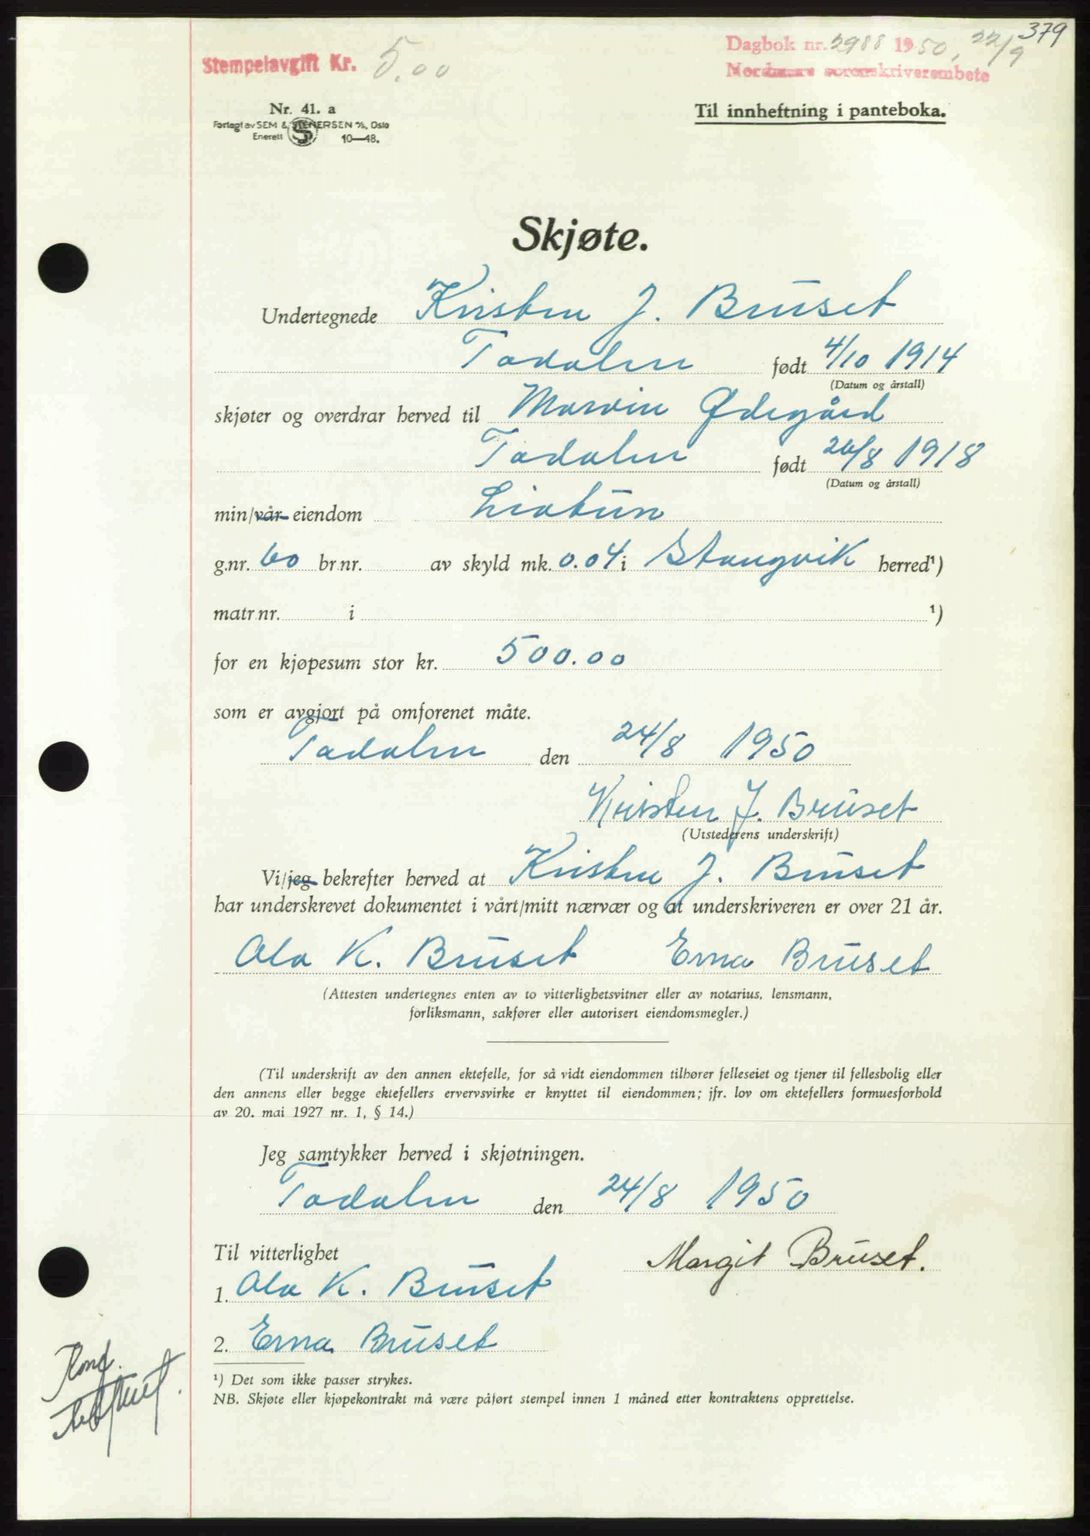 379
Stempelavgift Kr. 5.00
Dagbok nr. 2988 1950, 22/9
Nordmøre sorenskriverembete
Nr. 41. a
Forlagt av SEM & STENERSEN A/S, Oslo
Enerett S 10—48.
Til innheftning i panteboka.
Skjøte.
Undertegnede Kristen J. Bruset
Todalen født 4/10 1914
(Datum og årstall)
skjøter og overdrar herved til Marvin Ødegård
Todalen født 26/8 1918
(Datum og årstall)
min/vår eiendom Liatun
g.nr. 60 br.nr. av skyld mk. 0.04 i Stangvik herred¹)
matr.nr. i ¹)
for en kjøpesum stor kr. 500.00
som er avgjort på omforenet måte.
Todalen den 24/8 1950
Kristen J. Bruset
(Utstederens underskrift)
Vi/jeg bekrefter herved at Kristen J. Bruset
har underskrevet dokumentet i vårt/mitt nærvær og at underskriveren er over 21 år.
Ola K. Bruset Erna Bruset
(Attesten undertegnes enten av to vitterlighetsvitner eller av notarius, lensmann,
forliksmann, sakfører eller autorisert eiendomsmegler.)
(Til underskrift av den annen ektefelle, for så vidt eiendommen tilhører felleseiet og tjener til fellesbolig eller
den annens eller begge ektefellers ervervsvirke er knyttet til eiendommen; jfr. lov om ektefellers formuesforhold
av 20. mai 1927 nr. 1, § 14.)
Jeg samtykker herved i skjøtningen.
Todalen den 24/8 1950
Til vitterlighet Margit Bruset.
1. Ola K. Bruset
2. Erna Bruset
¹) Det som ikke passer strykes.
NB. Skjøte eller kjøpekontrakt må være påført stempel innen 1 måned etter kontraktens opprettelse.